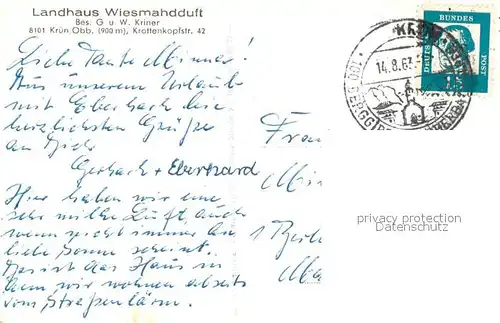 Landhaus Wiesmahdduft
Bes. G u. W. Kriner
8101 Krün, Obb. (900 m), Krottenkopfstr. 42
Liebe Tante Minna!
Aus unserem Urlaub
mit Eberhard die
herzlichsten Grüße
an Dich
+ Eberhard
Hier haben wir eine
sehr milde Luft, auch
wenn nicht immer die
liebe Sonne scheint.
das Haus in
dem wir wohnen abseits
vom Straßenlärm.
Frau
1 Berlin
DEUTSCHE BUNDESPOST
15
14.8.63
privacy protection
Datenschutz